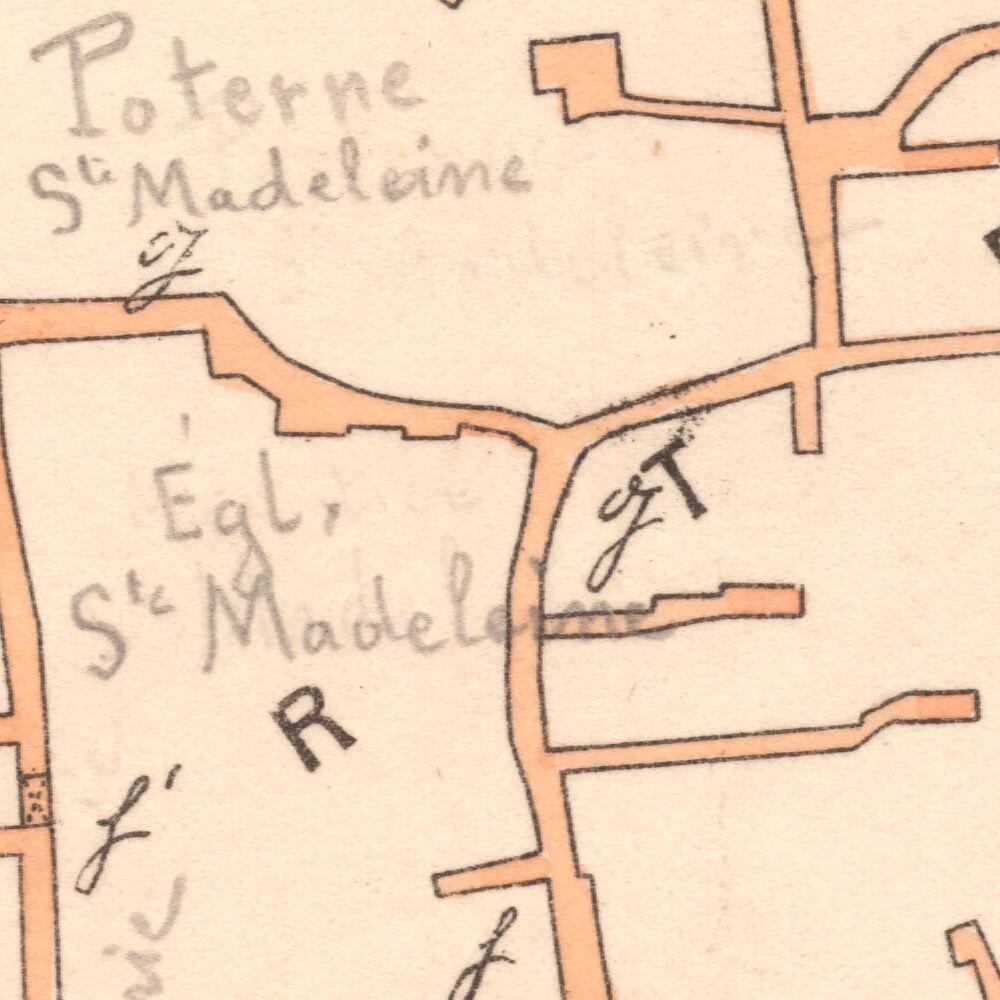 Poterne
Ste Madeleine
g
Égl.
Ste Madeleine
g
T
R
f'
f
rie